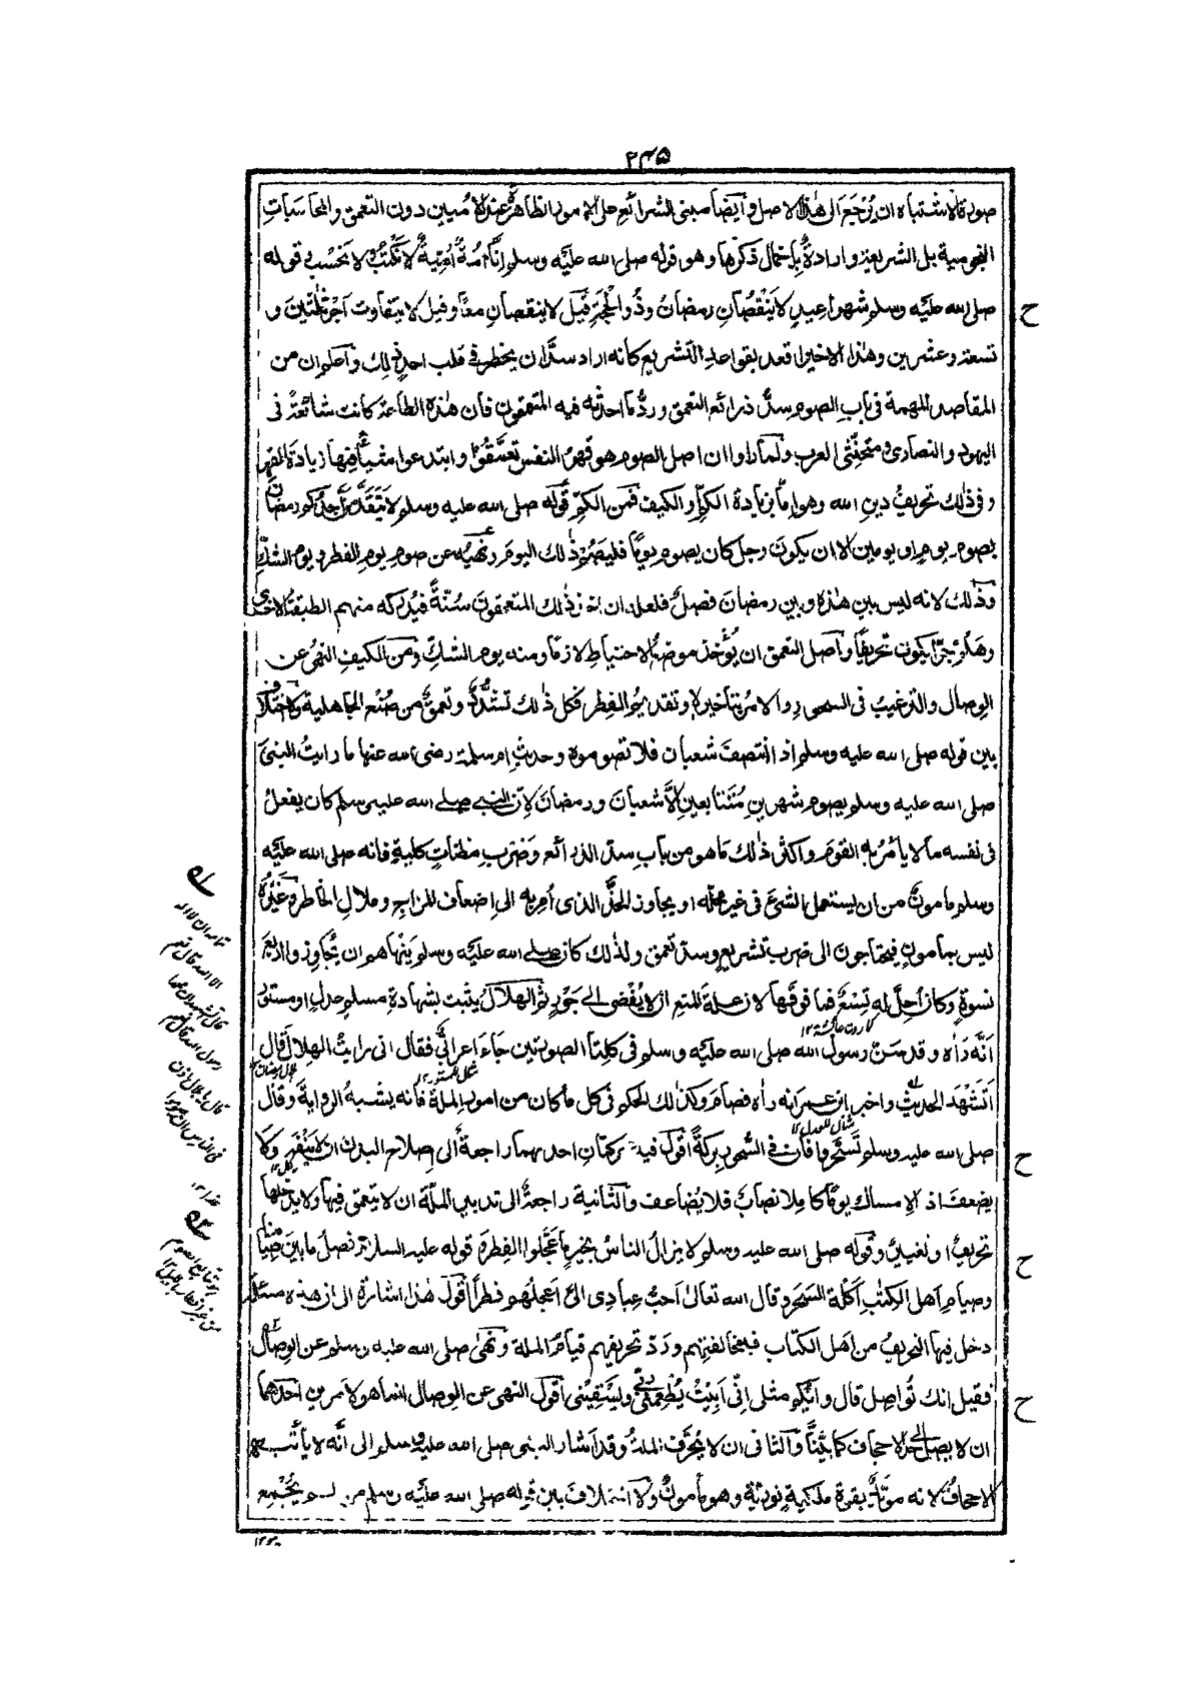 ٢٤٥
صورة الاشتباه ان يرجع الى هذا الاصل وايضا مبنى الشرائع على الامور الظاهرة عند الاميين دون التعمق والمحاسبات
النجومية بل الشريعة واردة باخمال ذكرها وهو قوله صلى الله عليه وسلم انا امة امية لا نكتب ولا نحسب قوله
صلى الله عليه وسلم شهرا عيد لا ينقصان رمضان وذو الحجة قيل لا ينقصان معا وقيل لا يتفاوت اجر ثلثين و
تسعة وعشرين وهذا الاخير اقعد بقواعد التشريع كانه اراد سد ان يخطر فى قلب احد ذلك واعلم ان من
المقاصد المهمة فى باب الصوم سد ذرائع التعمق ورد ما احدثه فيه المتعمقون فان هذه الطاعة كانت شائعة فى
اليهود والنصارى ومتحنثى العرب ولما راوا ان اصل الصوم هو قهر النفس تعمقوا وابتدعوا شيأ فيها زيادة القهر
وفى ذلك تحريف دين الله وهو اما بزيادة الكم او الكيف فمن الكم قوله صلى الله عليه وسلم لا يتقدمن احدكم رمضان
بصوم يوم او يومين الا ان يكون رجل كان يصوم يوما فليصم ذلك اليوم ونهيه عن صوم يوم الفطر ويوم الشك
وذلك لانه ليس بين هذه وبين رمضان فصل فلعله ان اخذ ذلك المتعمقون سنة فيدركه منهم الطبقة الاخرى
وهلم جرا يكون تحريفا واصل التعمق ان يؤخذ موضع الاحتياط لازما ومنه يوم الشك ومن الكيف النهى عن
الوصال والترغيب فى السحور والامر بتاخيره وتقديم الفطر فكل ذلك تشدد وتعمق من صنع الجاهلية ولا اختلاف
بين قوله صلى الله عليه وسلم اذا انتصف شعبان فلا تصوموه وحديث ام سلمة رضى الله عنها ما رايت النبى
صلى الله عليه وسلم يصوم شهرين متتابعين الا شعبان ورمضان لان النبى صلى الله عليه وسلم كان يفعل
فى نفسه ما لا يأمر به القوم واكثر ذلك ما هو من باب سد الذرائع وضرب مظنات كلية فانه صلى الله عليه
وسلم مامون من ان يستعمل الشئ فى غير محله او يجاوز الحد الذى امر به الى اضعاف المزاج وملال الخاطر وغيره
ليس بمامون فيحتاجون الى ضرب تشريع وسد تعمق ولذلك كان صلى الله عليه وسلم ينهاهم ان يجاوزوا اربع
نسوة وكان احل له تسع فما فوقها لان علة المنع ان لا يفضى الى جور ثم الهلال يثبت بشهادة مسلم عدل او مستور
انه راه وقد سن رسول الله صلى الله عليه وسلم فى كلتا الصورتين جاء اعرابى فقال انى رايت الهلال قال
اتشهد الحديث واخبر ابن عمر انه راه فصام وكذلك الحكم فى كل ما كان من امور الملة فانه يشبه الرواية وقال
صلى الله عليه وسلم تسحروا فان فى السحور بركة اقول فيه بركتان احدهما راجعة الى اصلاح البدن ان لا ينفر ولا
يضعف اذ الامساك يوما كاملا نصاب فلا يضاعف والثانية راجعة الى تدبير الملة ان لا يتعمق فيها ولا يدخلها
تحريف او تغيير وقوله صلى الله عليه وسلم لا يزال الناس بخير ما عجلوا الفطر قوله عليه السلام فصل ما بين صيامنا
وصيام اهل الكتب اكلة السحر وقال الله تعالى احب عبادى الى اعجلهم فطرا اقول هذا اشارة الى ان هذه مسئلة
دخل فيها التحريف من اهل الكتاب فبمخالفتهم ورد تحريفهم قيام الملة ونهى صلى الله عليه وسلم عن الوصال
فقيل انك تواصل قال وايكم مثلى انى ابيت يطعمنى ربى ويسقينى اقول النهى عن الوصال انما هو لامرين احدهما
ان لا يصل الى حد الاجحاف كما بينا والثانى ان لا يحرف الملة وقد اشار النبى صلى الله عليه وسلم الى انه لا يأتيه
الاجحاف لانه مؤيد بقوة ملكية نورية وهو مامون ولا اختلاف بين قوله صلى الله عليه وسلم من لم يجمع
ح
ح
ح
ح